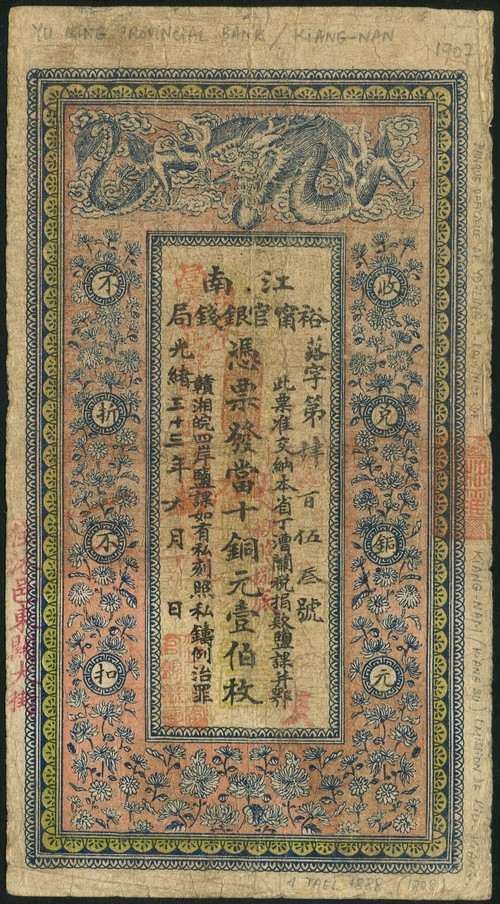 YU NING PROVINCIAL BANK / KIANG-NAN
1907
江南
裕甯官銀錢局
收兌銅元
不折不扣
蕗字第肆百伍叁號
此票准交納本省丁漕關稅捐款鹽課并鄂
憑票發當十銅元壹伯枚
贛湘皖四岸鹽課如有私刻照私鑄例治罪
光緒三十三年九月 日
邑東關大街
KIANG NAN
1 TAEL 1888 (1908)